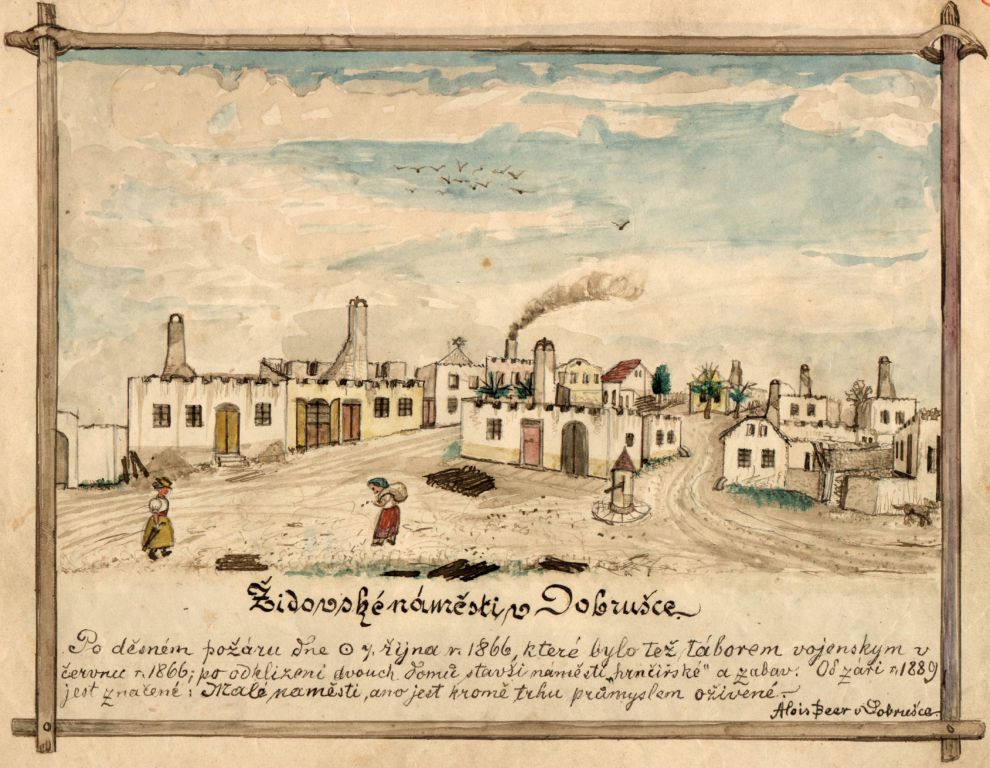 Židovské náměsti v Dobrušce
Po děsném požáru dne ʘ 7. října r. 1866, které bylo též táborem vojenskym v
červnu r. 1866; po odklizeni dvouch domů stavši náměsti „hrnčířské" a zabav. Od září r. 1889
jest značené: Malé naměsti, ano jest kromě trhu průmyslem oživené.
Alois Beer v Dobrušce.